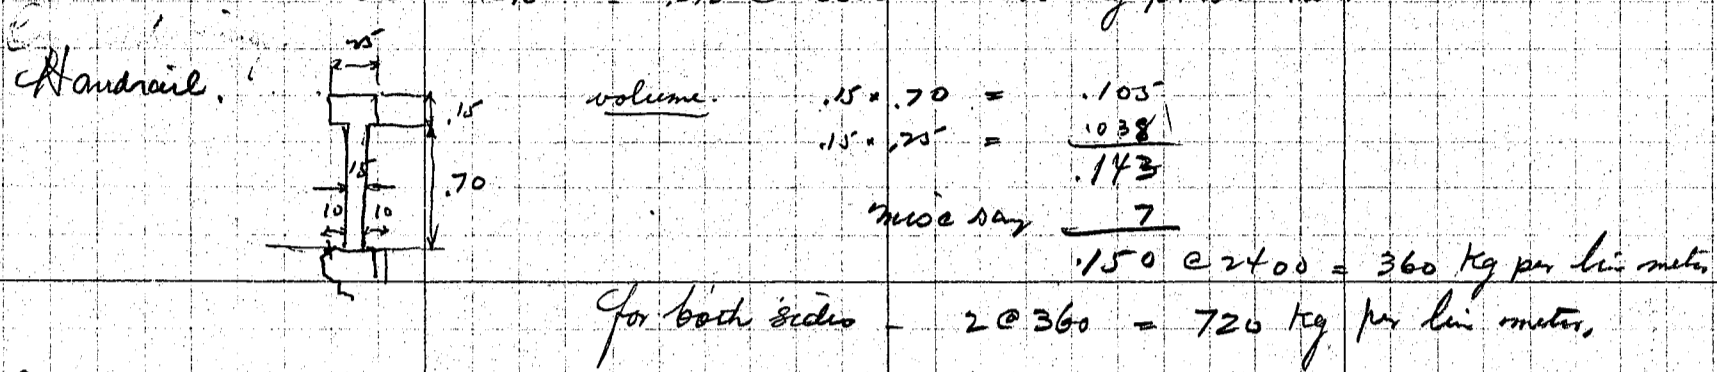 25
Handrail.
.15
volume. .15 × .70 = .105
.15 × .25 = .038
.143
15
.70
10 10
misc say 7
.150 @ 2400 = 360 Kg per lin meter
for both sides - 2 @ 360 = 720 Kg per lin meter.